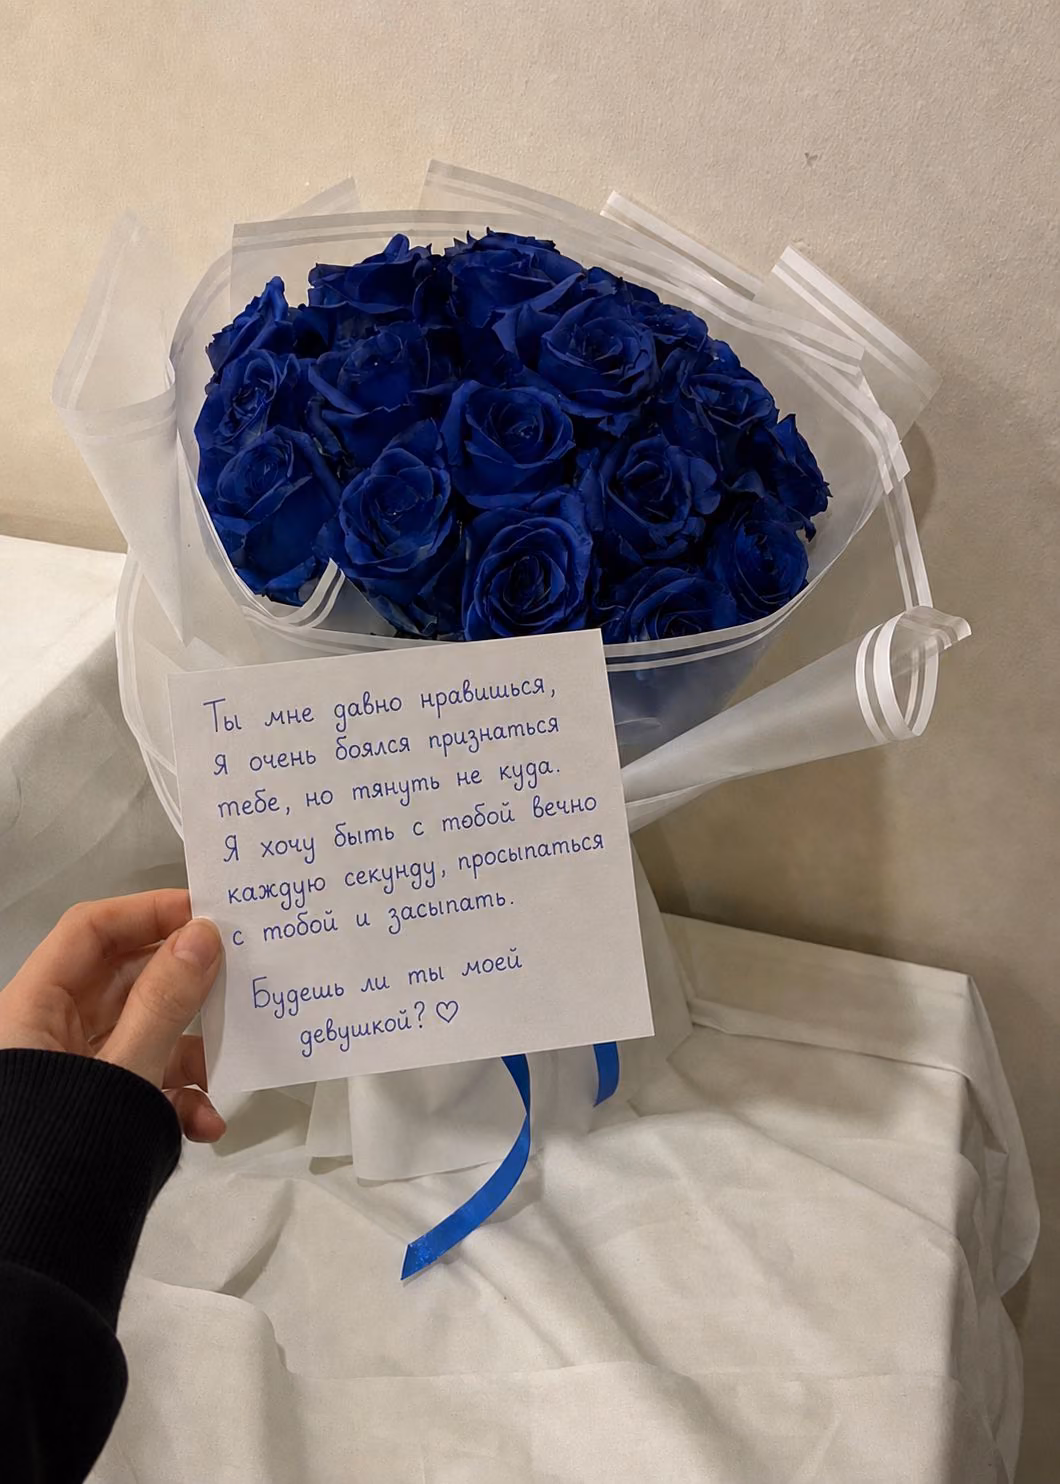 Ты мне давно нравишься,
я очень боялся признаться
тебе, но тянуть не куда.
Я хочу быть с тобой вечно
каждую секунду, просыпаться
с тобой и засыпать.
Будешь ли ты моей
девушкой? ♡